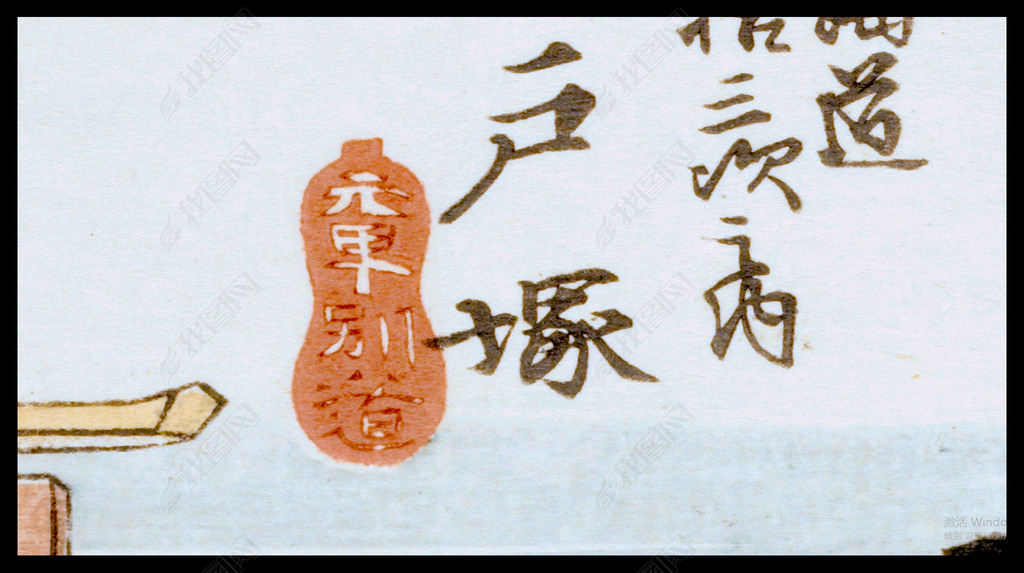 道
拾三次之内
戸塚
元甼別道
我图网
激活 Windo